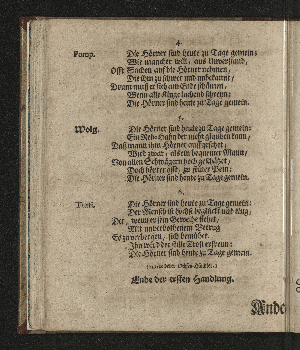 4.
Pomp. Die Hörner sind heute zu Tage gemein:
Wie mancher will, aus Unverstand,
Offt Sachen auf die Hörner nehmen,
Die ihm zu schwer und unbekannt;
Drum muß er sich am Ende schämen,
Wenn alle Kluge lachend schreyn:
Die Hörner sind heute zu Tage gemein.
5.
Wolg. Die Hörner sind heute zu Tage gemein:
Ein Reh-Hahn der nicht glauben kann,
Daß mann ihm Hörner aufgesetzet,
Wird zwar, als ein bequemer Mann,
Von allen Schwägern hoch geschätzet,
Doch höret offt, zu seiner Pein:
Die Hörner sind heute zu Tage gemein.
6.
Die Hörner sind heute zu Tage gemein:
Der Mensch ist höchst beglückt und klug,
Der, wenn er sein Geweyhe siehet,
Mit unverbothenem Betrug
Es zu verbergen, sich bemühet.
Ihn wird der stille Trost erfreun:
Die Hörner sind heute zu Tage gemein.
Ende der ersten Handlung.
Ande-